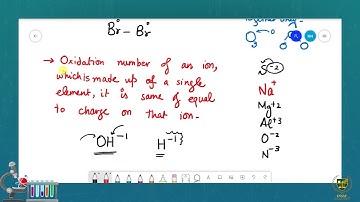 Br – Br
together only
→ Oxidation number of an ion,
which is made up of a single
element, it is same of equal
to charge on that ion.
OH⁻¹ H⁻¹}
S⁻²
Na⁺
Mg⁺²
Al⁺³
O⁻²
N⁻³